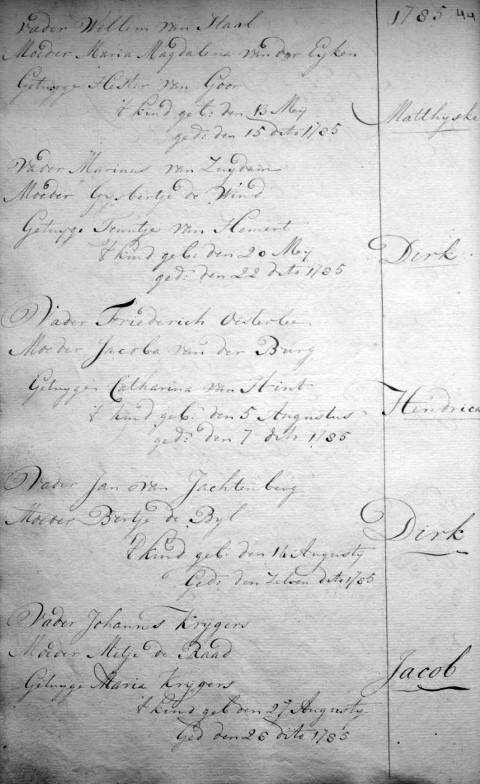 1785 44
Vader Willem van Staal
Moeder Maria Magdalena van der Eyken
Getuyge Hester van Goor
't kind geb: den 13 Mey Matthyske
ged: den 15 dito 1785
Vader Marinus van Zuydam
Moeder Gysbertje de Wind
Getuyge Teuntje van Hemert
't kind geb: den 20 Mey Dirk
ged: den 22 dito 1785
Vader Friederich Oesterbe
Moeder Jacoba van der Burg
Getuyge Catharina van Stint
't kind geb: den 5 Augustus Hendrica
ged: den 7 dito 1785
Vader Jan van Jachtenberg
Moeder Bertje de Byl Dirk
't kind geb: den 14 Augusty
Ged: den Zelven dito 1785
Vader Johannis Krygers
Moeder Metje de Raad Jacob
Getuyge Maria Krygers
't kind geb den 27 Augusty
Ged den 28 dito 1785